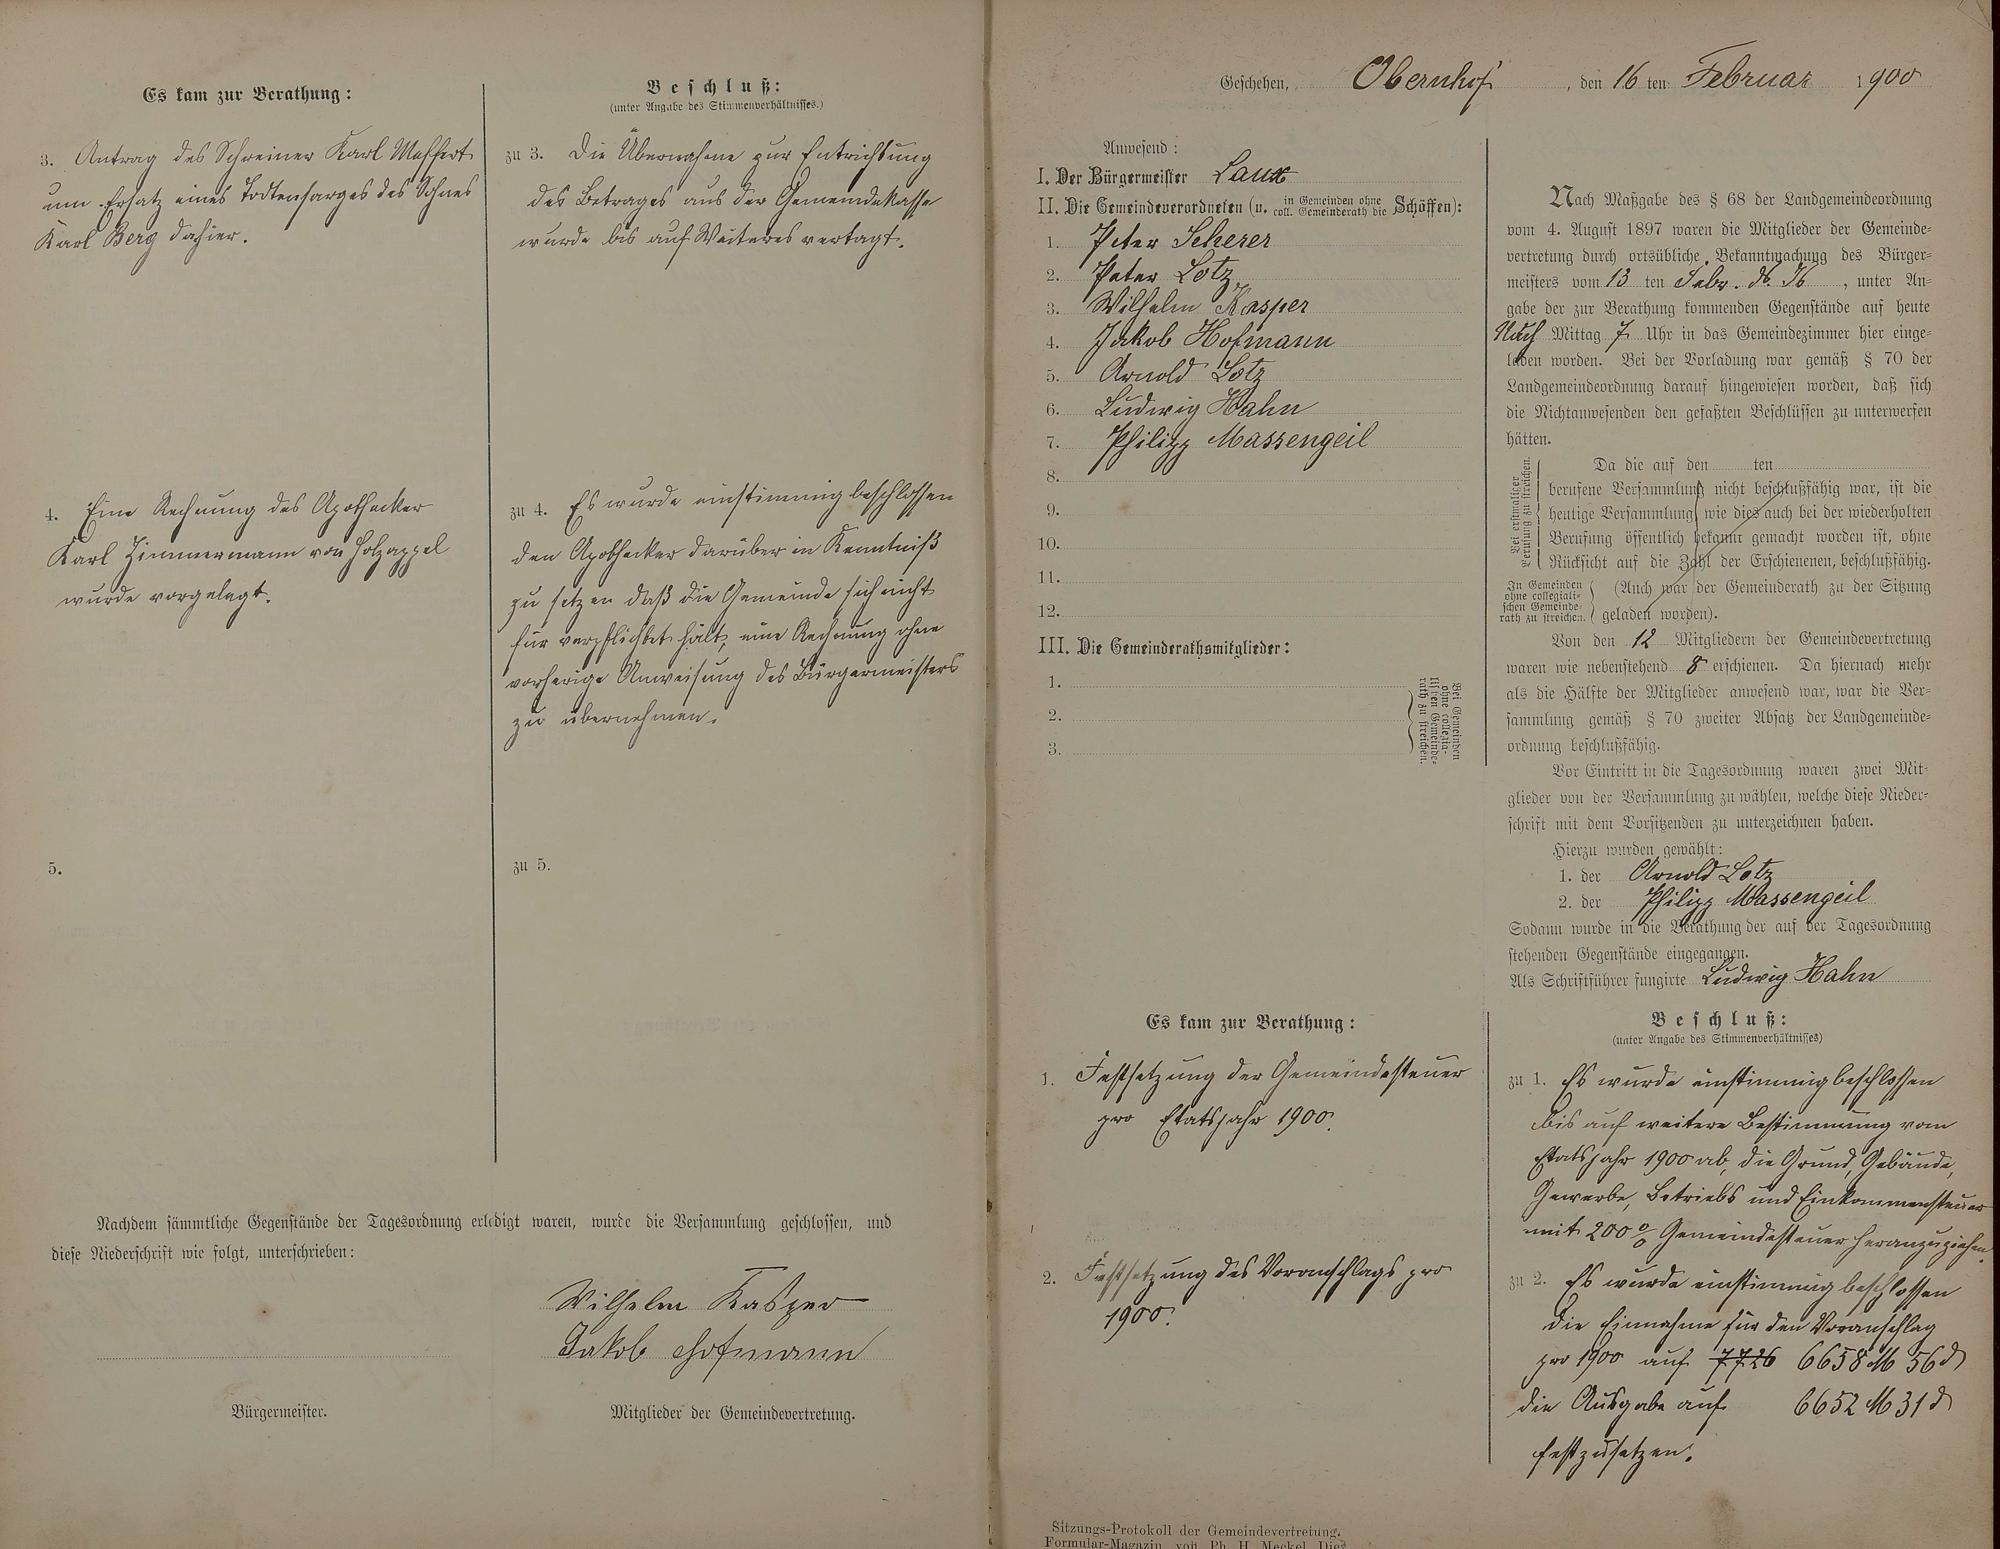 Es kam zur Berathung:
3. Antrag des Schreiner Karl
um Ersatz eines Todtensarges des Sohnes
Karl Berg dahier.
4. Eine Rechnung des Apothecker
Karl Zimmermann von Holzappel
wurde vorgelegt.
5.
Beschluß:
(unter Angabe des Stimmenverhältnisses.)
zu 3. Die Übernahme zur Entrichtung
des Betrages aus der Gemeindekasse
wurde bis auf Weiteres vertagt.
zu 4. Es wurde einstimmig beschlossen
den Apothecker darüber in Kenntniß
zu setzen daß die Gemeinde sich nicht
für verpflichtet hält, eine Rechnung ohne
vorherige Anweisung des Bürgermeisters
zu übernehmen.
zu 5.
Nachdem sämmtliche Gegenstände der Tagesordnung erledigt waren, wurde die Versammlung geschlossen, und
diese Niederschrift wie folgt, unterschrieben:
Wilhelm Kasper
Jakob Hofmann
Bürgermeister.
Mitglieder der Gemeindevertretung.
Geschehen, Obernhof, den 16 ten Februar 1900
Anwesend:
I. Der Bürgermeister Laux
II. Die Gemeindeverordneten (u. in Gemeinden ohne coll. Gemeinderath die Schöffen):
1. Peter Scherer
2. Peter Lotz
3. Wilhelm Kasper
4. Jakob Hofmann
5. Arnold Lotz
6. Ludwig Hahn
7. Philipp Massengeil
8.
9.
10.
11.
12.
III. Die Gemeinderathsmitglieder:
1.
2.
3.
Bei Gemeinden
ohne collegia-
lischen Gemeinde-
rath zu streichen.
Nach Maßgabe des § 68 der Landgemeindeordnung
vom 4. August 1897 waren die Mitglieder der Gemeinde-
vertretung durch ortsübliche Bekanntmachung des Bürger-
meisters vom 13 ten Febr. ds. Js, unter An-
gabe der zur Berathung kommenden Gegenstände auf heute
Nach Mittag 7 Uhr in das Gemeindezimmer hier einge-
laden worden. Bei der Vorladung war gemäß § 70 der
Landgemeindeordnung darauf hingewiesen worden, daß sich
die Nichtanwesenden den gefaßten Beschlüssen zu unterwerfen
hätten.
Bei erstmaliger
Berufung zu streichen.
Da die auf den ten
berufene Versammlung nicht beschlußfähig war, ist die
heutige Versammlung, wie dies auch bei der wiederholten
Berufung öffentlich bekannt gemacht worden ist, ohne
Rücksicht auf die Zahl der Erschienenen, beschlußfähig.
In Gemeinden
ohne collegiali-
schen Gemeinde-
rath zu streichen.
(Auch war der Gemeinderath zu der Sitzung
geladen worden).
Von den 12 Mitgliedern der Gemeindevertretung
waren wie nebenstehend 8 erschienen. Da hiernach mehr
als die Hälfte der Mitglieder anwesend war, war die Ver-
sammlung gemäß § 70 zweiter Absatz der Landgemeinde-
ordnung beschlußfähig.
Vor Eintritt in die Tagesordnung waren zwei Mit-
glieder von der Versammlung zu wählen, welche diese Nieder-
schrift mit dem Vorsitzenden zu unterzeichnen haben.
Hierzu wurden gewählt:
1. der Arnold Lotz
2. der Philipp Massengeil
Sodann wurde in die Berathung der auf der Tagesordnung
stehenden Gegenstände eingegangen.
Als Schriftführer fungirte Ludwig Hahn
Es kam zur Berathung:
1. Festsetzung der Gemeindesteuer
pro Etatsjahr 1900.
2. Festsetzung des Voranschlags pro
1900.
Beschluß:
(unter Angabe des Stimmenverhältnisses)
zu 1. Es wurde einstimmig beschlossen
bis auf weitere Bestimmung vom
Etatsjahr 1900 ab, die Grund, Gebäude,
Gewerbe, Betriebs und Einkommensteuer
mit 200 % Gemeindesteuer heranzuziehen.
zu 2. Es wurde einstimmig beschlossen
die Einnahme für den Voranschlag
pro 1900 auf 7726 6658 M 56 d
die Ausgabe auf 6652 M 31 d
festzusetzen.
Sitzungs-Protokoll der Gemeindevertretung.
Formular-Magazin von Ph. H. Meckel